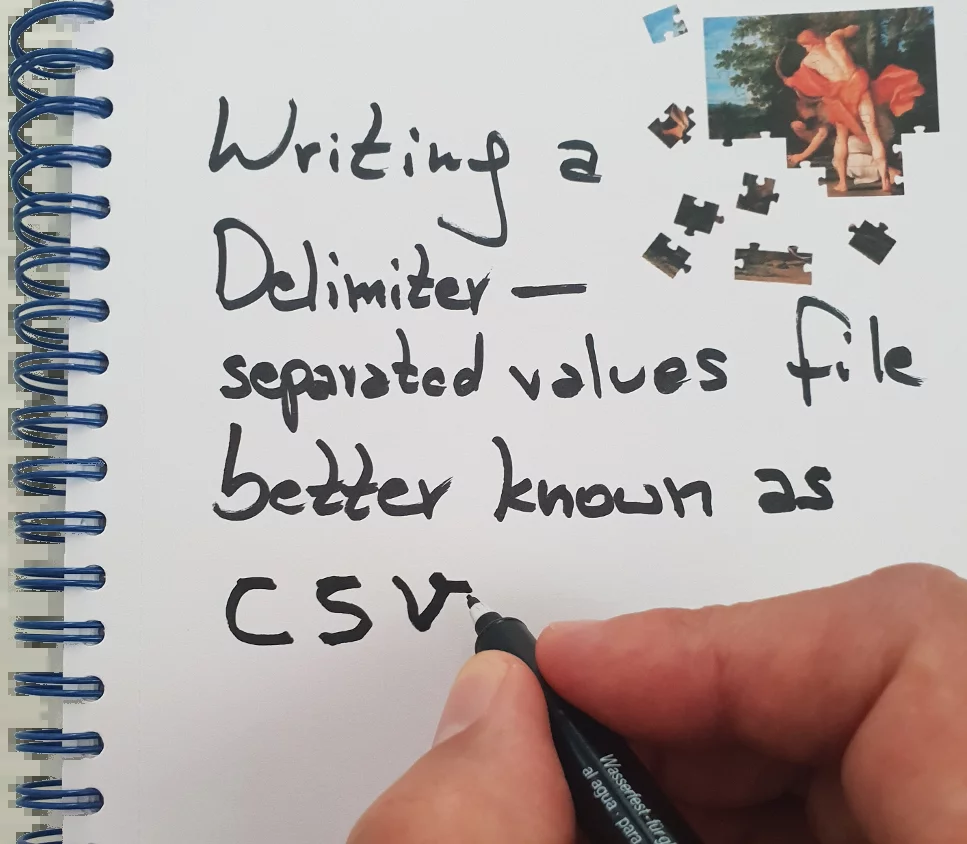 Writing a
Delimiter —
separated values file
better known as
CSV
Wasserfest-für
al agua · para